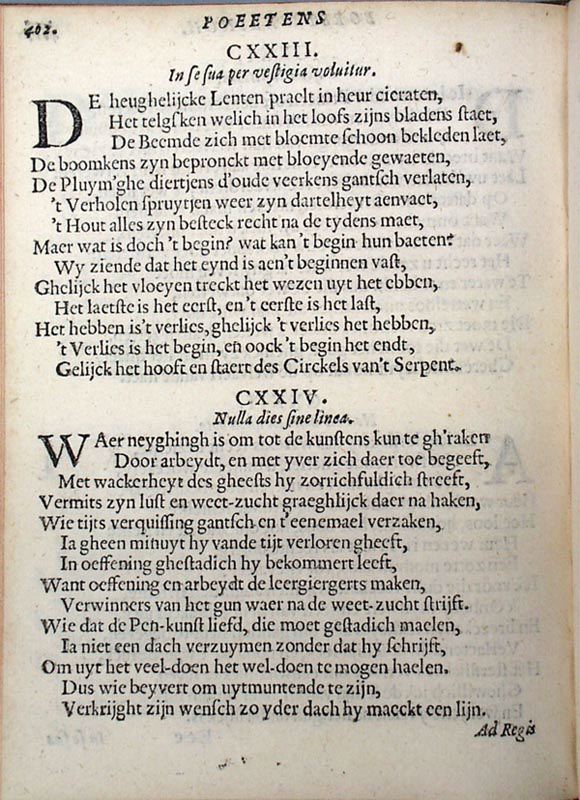 402. POEETENS
CXXIII.
In se sua per vestigia voluitur.
DE heughelijcke Lenten praelt in heur cieraten,
Het telgsken welich in het loofs zijns bladens staet,
De Beemde zich met bloemte schoon bekleden laet,
De boomkens zyn bepronckt met bloeyende gewaeten,
De Pluym'ghe diertjens d'oude veerkens gantsch verlaten,
't Verholen spruytjen weer zyn dartelheyt aenvaet,
't Hout alles zyn besteck recht na de tydens maet,
Maer wat is doch 't begin? wat kan 't begin hun baeten?
Wy ziende dat het eynd is aen't beginnen vast,
Ghelijck het vloeyen treckt het wezen uyt het ebben,
Het laetste is het eerst, en 't eerste is het last,
Het hebben is't verlies, ghelijck 't verlies het hebben,
't Verlies is het begin, eñ oock 't begin het endt,
Gelijck het hooft en staert des Circkels van't Serpent.
CXXIV.
Nulla dies sine linea.
WAer neyghingh is om tot de kunstens kun te gh'raken
Door arbeydt, en met yver zich daer toe begeeft,
Met wackerheyt des gheests hy zorrichfuldich streeft,
Vermits zyn lust en weet-zucht graeghlijck daer na haken,
Wie tijts verquissing gantsch en t'eenemael verzaken,
Ia gheen minuyt hy vande tijt verloren gheeft,
In oeffening ghestadich hy bekommert leeft,
Want oeffening en arbeydt de leergiergerts maken,
Verwinners van het gun waer na de weet-zucht strijft.
Wie dat de Pen-kunst liefd, die moet gestadich maelen,
Ia niet een dach verzuymen zonder dat hy schrijft,
Om uyt het veel-doen het wel-doen te mogen haelen.
Dus wie beyvert om uytmuntende te zijn,
Verkrijght zijn wensch zo yder dach hy maeckt een lijn.
Ad Regis